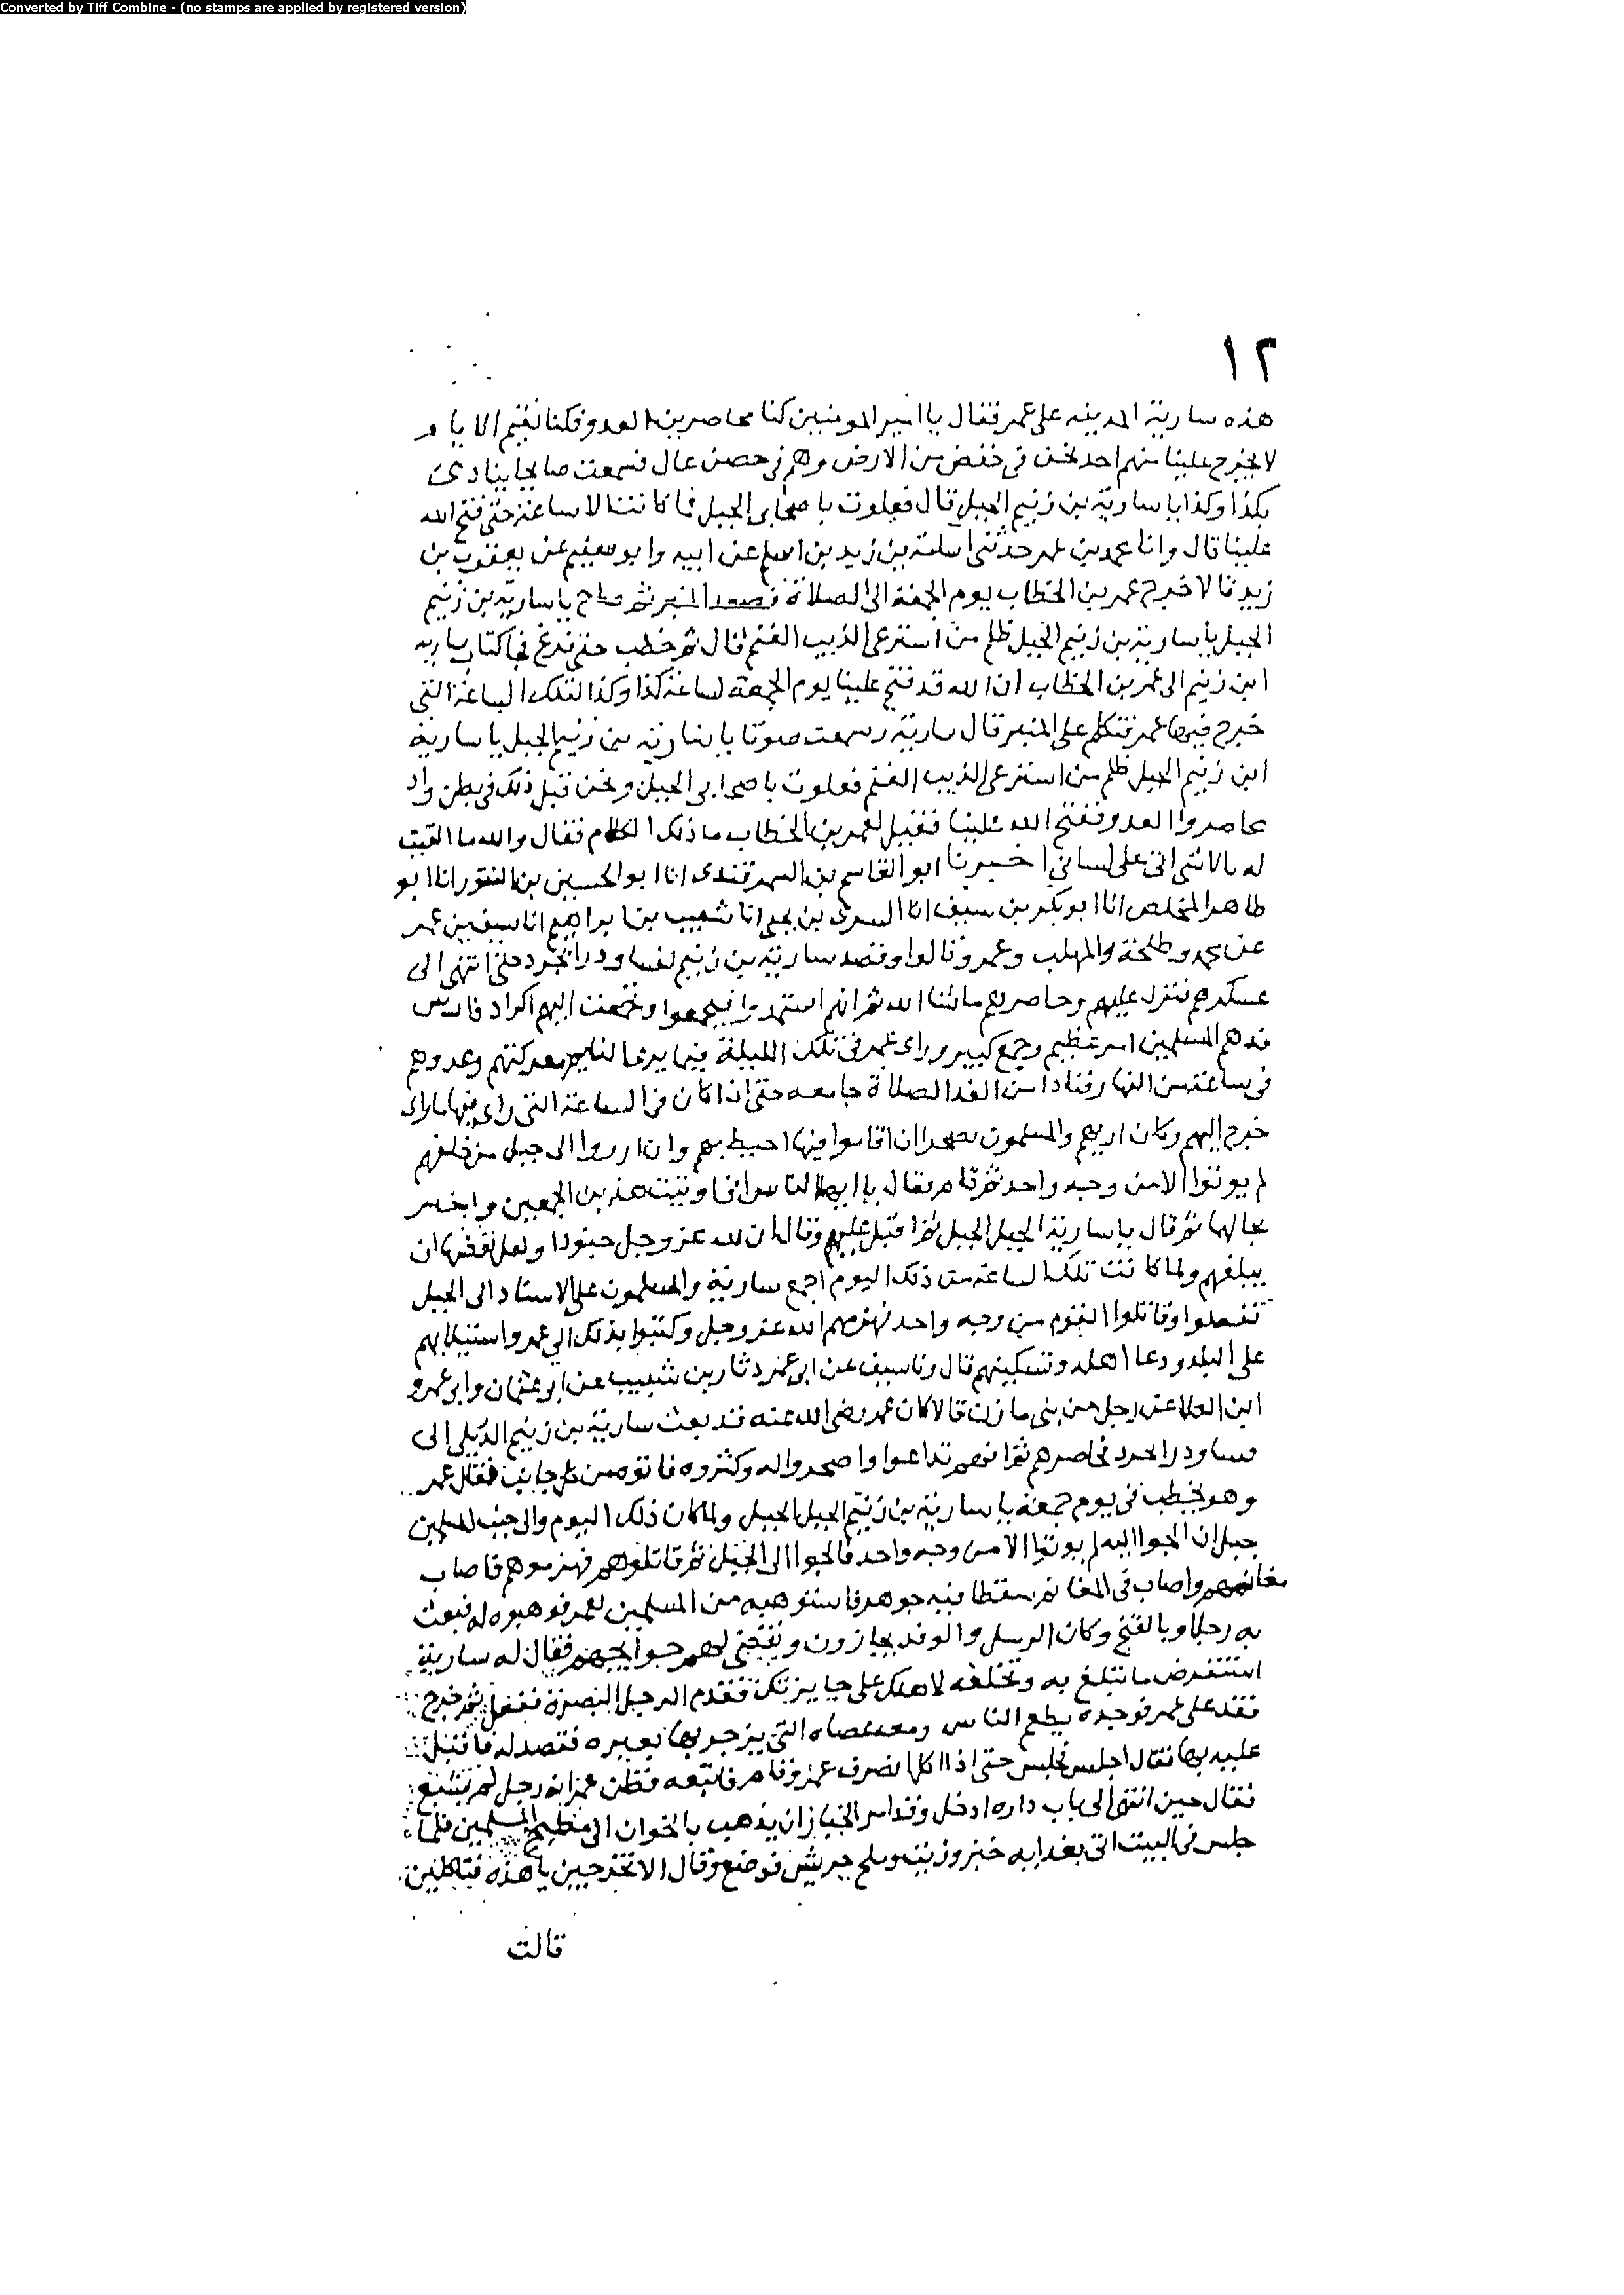 Converted by Tiff Combine - (no stamps are applied by registered version)
١٢
هذه سارية المدينه على عمر فقال يا امير المومنين كنا محاصرين العدو فكنا نقيم الايام
لا يخرج علينا منهم احد نحن في خفض من الارض وهم في حصن عال فسمعت صايحا ينادي
بكذا وكذا يا سارية بن زنيم الجبل قال فعلوت باصحابي الجبل فما كانت الا ساعة حتى فتح الله
علينا قال وانا محمد بن عمر حدثني اسامة بن زيد بن اسلم عن ابيه وابو سليم عن يعقوب بن
زيد قالا خرج عمر بن الخطاب يوم الجمعة الى الصلاة فصعد المنبر ثم صاح يا سارية بن زنيم
الجبل يا سارية بن زنيم الجبل ظلم من استرعى الذيب الغنم قال ثم خطب حتى فرغ فجا كتاب سارية
ابن زنيم الى عمر بن الخطاب ان الله قد فتح علينا يوم الجمعة لساعة كذا وكذا لتلك الساعة التي
خرج فيها عمر فتكلم على المنبر قال سارية وسمعت صوتا يا سارية بن زنيم الجبل يا سارية
ابن زنيم الجبل ظلم من استرعى الذيب الغنم فعلوت باصحابي الجبل ونحن قبل ذلك في بطن واد
محاصروا العدو ففتح الله علينا فقيل لعمر بن الخطاب ما ذلك الكلام فقال والله ما القيت
له بالا شي اتى على لساني اخبرنا ابو القاسم بن السمرقندي انا ابو الحسين بن النقور انا ابو
طاهر المخلص انا ابو بكر بن سيف انا السري بن يحيى انا شعيب بن ابراهيم انا سيف بن عمر
عن محمد وطلحة والمهلب وعمرو قالوا وقصد سارية بن زنيم لفسا ودرابجرد حتى انتهى الى
عسكرهم فنزل عليهم وحاصرهم ما شا الله ثم انهم استمدوا فتجمعوا وتجمعت اليهم اكراد فارس
فدهم المسلمين امر عظيم وجمع كبير وراى عمر في تلك الليلة فيما يرى النايم معركتهم وعددهم
في ساعة من النهار فنادا من الغد الصلاة جامعه حتى اذا كان في الساعة التي راى فيها ما راى
خرج اليهم وكان اريهم والمسلمون بصحرا ان اقاموا فيها احيط بهم وان ارزوا الى جبل من خلفهم
لم يوتوا الا من وجه واحد ثم قام فقال يا ايها الناس اني اريت هذين الجمعين واخبر
بحالهما ثم قال يا سارية الجبل الجبل ثم اقبل عليهم وقال ان لله عز وجل جنودا ولعل بعضها ان
يبلغهم ولما كانت تلك الساعة من ذلك اليوم اجمع سارية والمسلمون على الاسناد الى الجبل
ففعلوا وقاتلوا القوم من وجه واحد فهزمهم الله عز وجل وكتبوا بذلك الى عمر واستيلايهم
على البلد ودعا اهله وتسكينهم قال ونا سيف عن ابي عمر دثار بن شبيب عن ابي عثمان وابي عمرو
ابن العلا عن رجل من بني مازن قالا كان عمر رضي الله عنه قد بعث سارية بن زنيم الديلي الى
فسا ودرابجرد فحاصرهم ثم انهم تداعوا واصحروا له وكثروه فاتوه من كل جانب فقال عمر
وهو يخطب في يوم جمعة يا سارية بن زنيم الجبل الجبل ولما كان ذلك اليوم والى جنب المسلمين
جبل ان لجوا اليه لم يوتوا الا من وجه واحد فلجوا الى الجبل ثم قاتلوهم فهزموهم فاصاب
مغانمهم واصاب في المغانم سفطا فيه جوهر فاستوهبه من المسلمين لعمر فوهبوه له فبعث
به رجلا وبالفتح وكان الرسل والوفد يجازون وتقضى لهم حوايجهم فقال له سارية
استقرض ما تبلغ به وتخلفه لاهلك على جايزتك فقدم الرجل البصرة ففعل ثم خرج
فقدم على عمر فوجده يطعم الناس ومعه عصاه التي يزجر بها بعيره فقصد له فاقبل
عليه بها فقال اجلس فجلس حتى اذا اكل انصرف عمر وقام فاتبعه فظن عمر انه رجل لم يشبع
فقال حين انتهى الى باب داره ادخل وقد امر الخباز ان يذهب بالخوان الى مطبخ المسلمين فلما
جلس في البيت اتى بغدايه خبز وزيت وملح جريش فوضع وقال الا تخرجين يا هذه فتاكلين
قالت